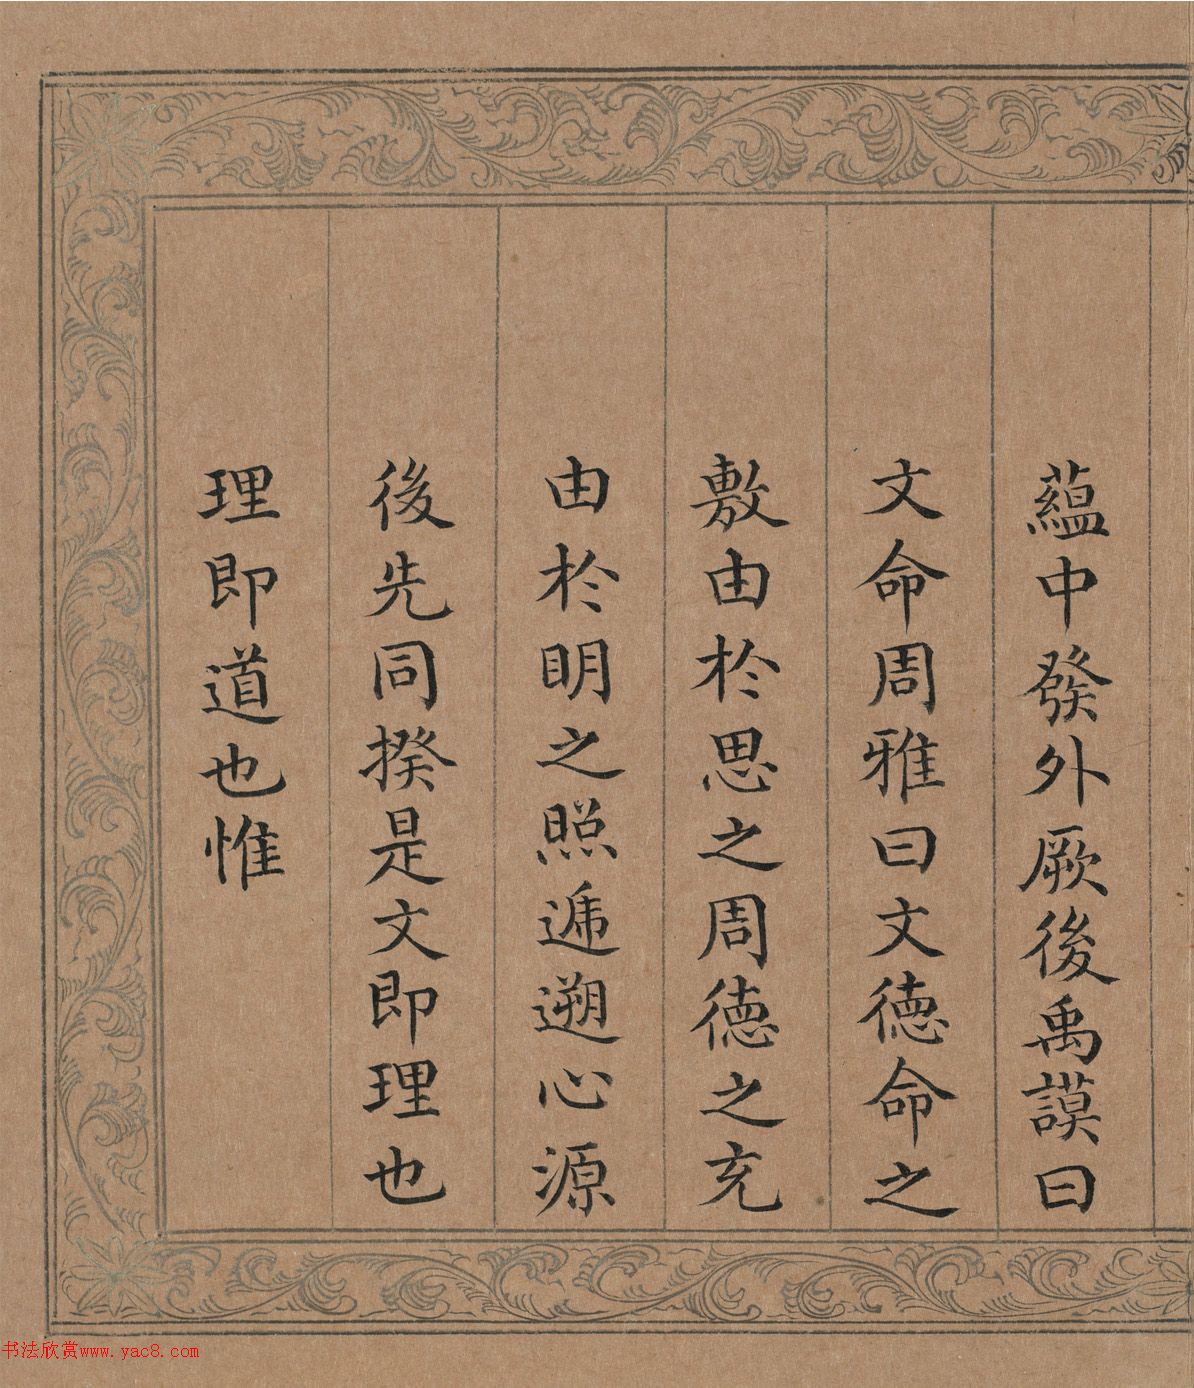 蘊中發外厥後禹謨曰
文命周雅曰文德命之
敷由於思之周德之充
由於明之照遞遡心源
後先同揆是文即理也
理即道也惟
书法欣赏www.yac8.com